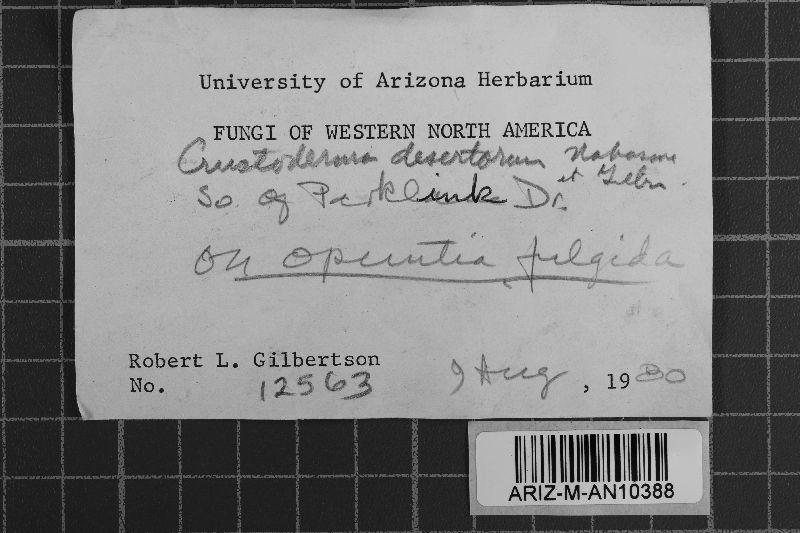 University of Arizona Herbarium
FUNGI OF WESTERN NORTH AMERICA
Crustoderma desertorum Nakasone
et Gilbn.
So. of Parklink Dr.
On Opuntia fulgida
Robert L. Gilbertson
No. 12563
9 Aug, 1980
ARIZ-M-AN10388